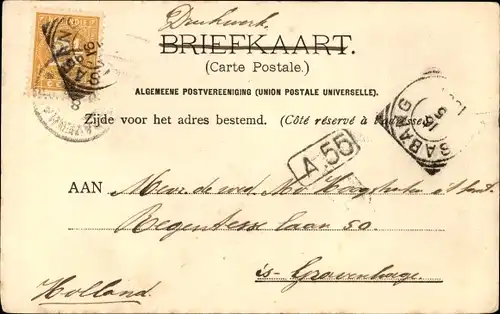 Drukwerk
BRIEFKAART.
(Carte Postale.)
ALGEMEENE POSTVEREENIGING (UNION POSTALE UNIVERSELLE).
Zijde voor het adres bestemd. (Côté réservé à l'adresse)
SABANG
A.55
AAN Mevr. de wed.
Regentesse laan 50.
's-Gravenhage.
Holland.